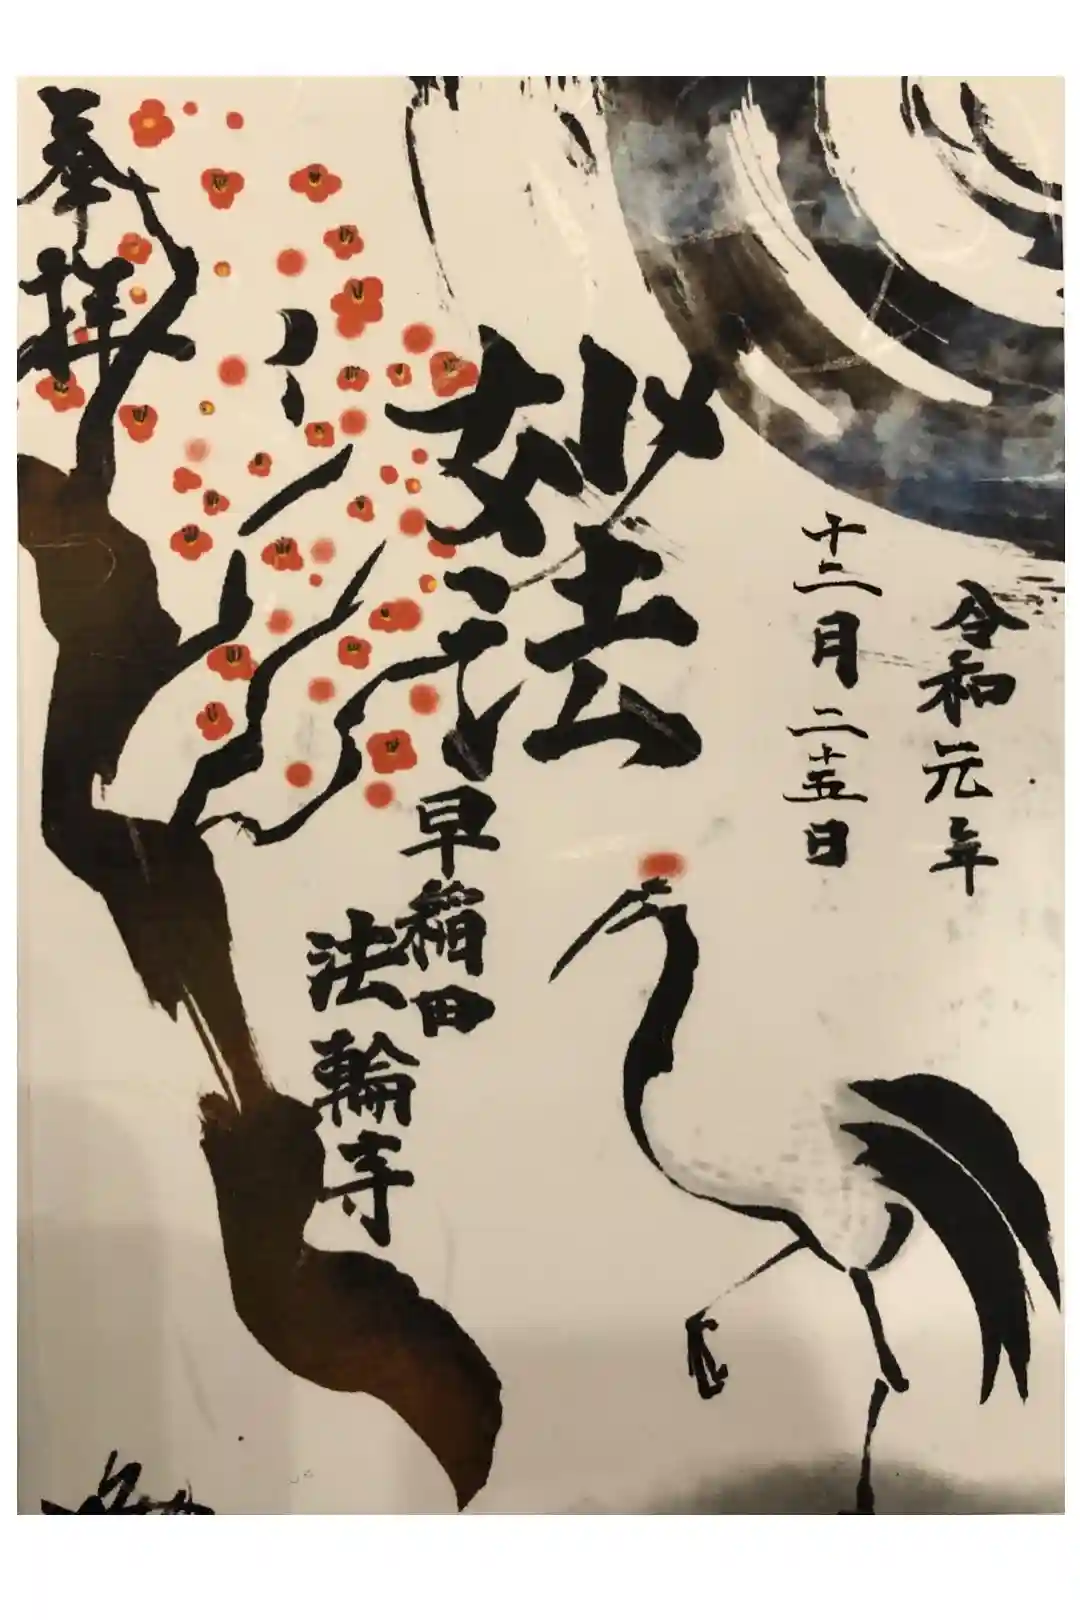 令和元年
十二月二十五日
妙法
早稲田
法輪寺
奉拝